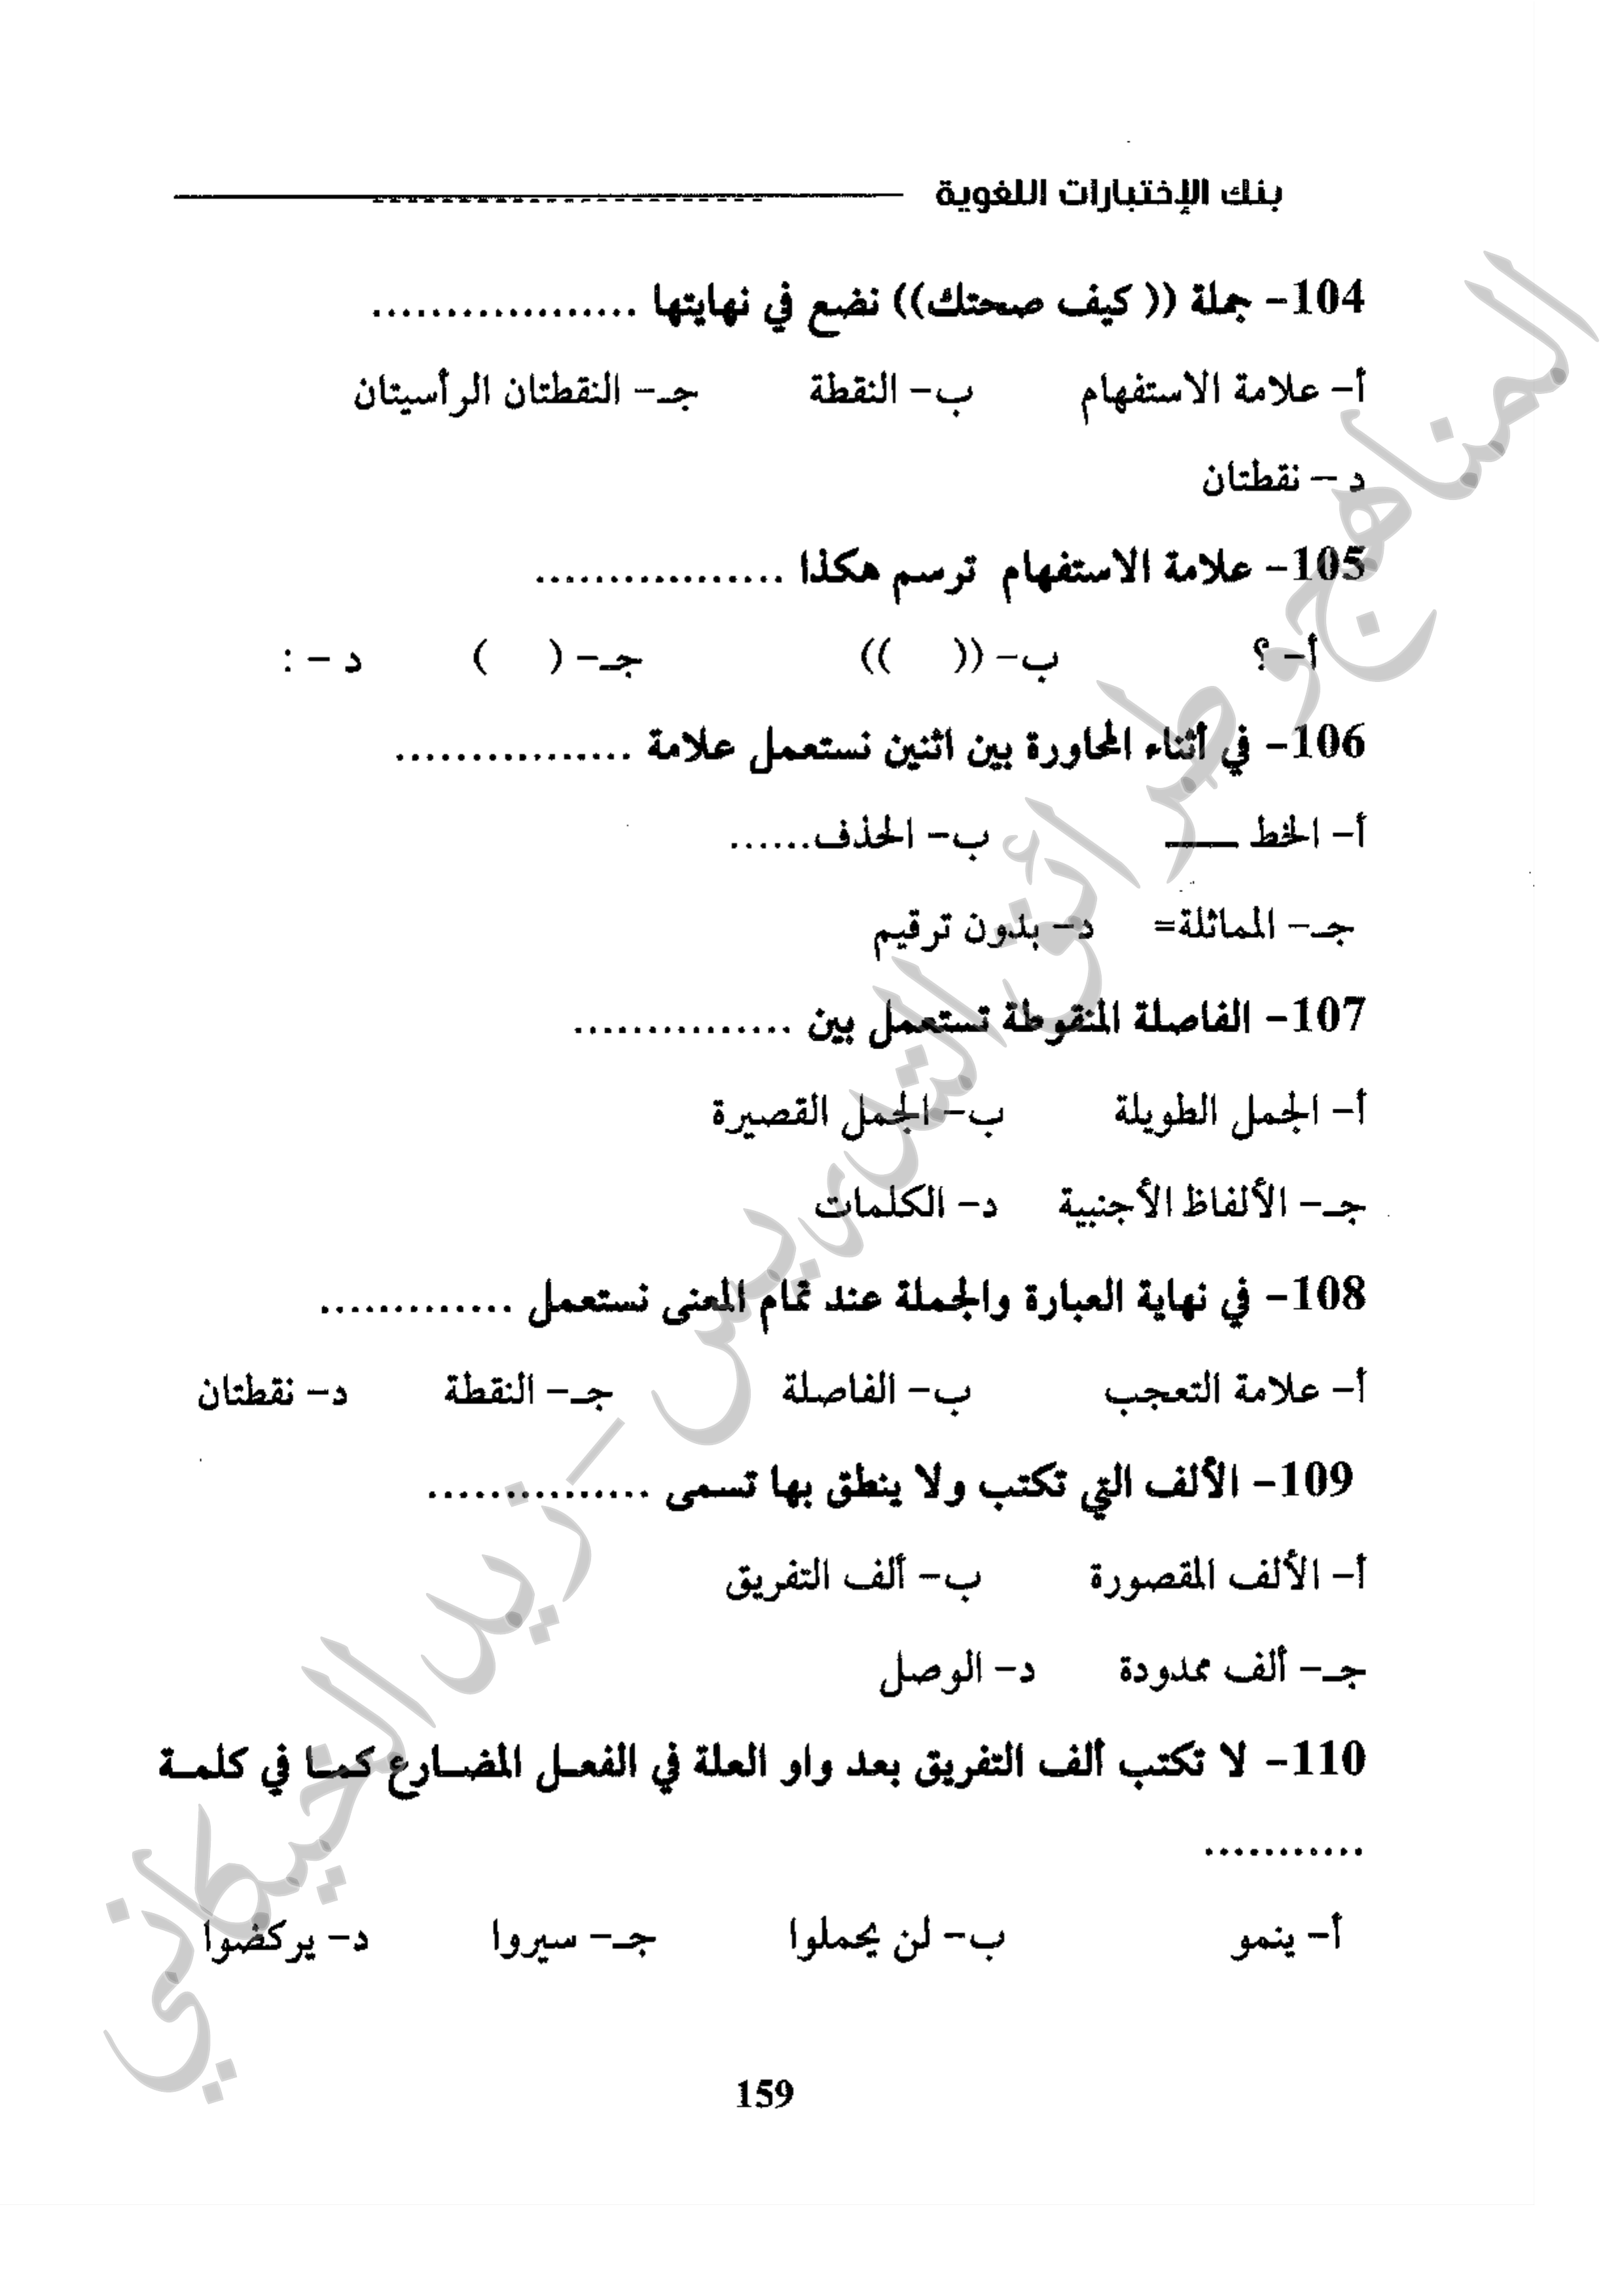 بنك الإختبارات اللغوية
104- جملة (( كيف صحتك)) نضع في نهايتها ..................
أ- علامة الاستفهام ب- النقطة جـ- النقطتان الرأسيتان
د – نقطتان
105- علامة الاستفهام ترسم هكذا .................
أ- ؟ ب- (( )) جـ- ( ) د – :
106- في أثناء المحاورة بين اثنين نستعمل علامة ................
أ- الخط ــــــ ب- الحذف......
جـ- المماثلة= د- بدون ترقيم
107- الفاصلة المنقوطة تستعمل بين ...............
أ- الجمل الطويلة ب- الجمل القصيرة
جـ- الألفاظ الأجنبية د- الكلمات
108- في نهاية العبارة والجملة عند تمام المعنى نستعمل .............
أ- علامة التعجب ب- الفاصلة جـ- النقطة د- نقطتان
109- الألف التي تكتب ولا ينطق بها تسمى ...............
أ- الألف المقصورة ب- ألف التفريق
جـ- ألف ممدودة د- الوصل
110- لا تكتب ألف التفريق بعد واو العلة في الفعـل المضـارع كمـا في كلمـة
...........
أ- ينمو ب- لن يحملوا جـ- سيروا د- يركضوا
159
المناهج وطرائق التدريس - زيد الخيكاني